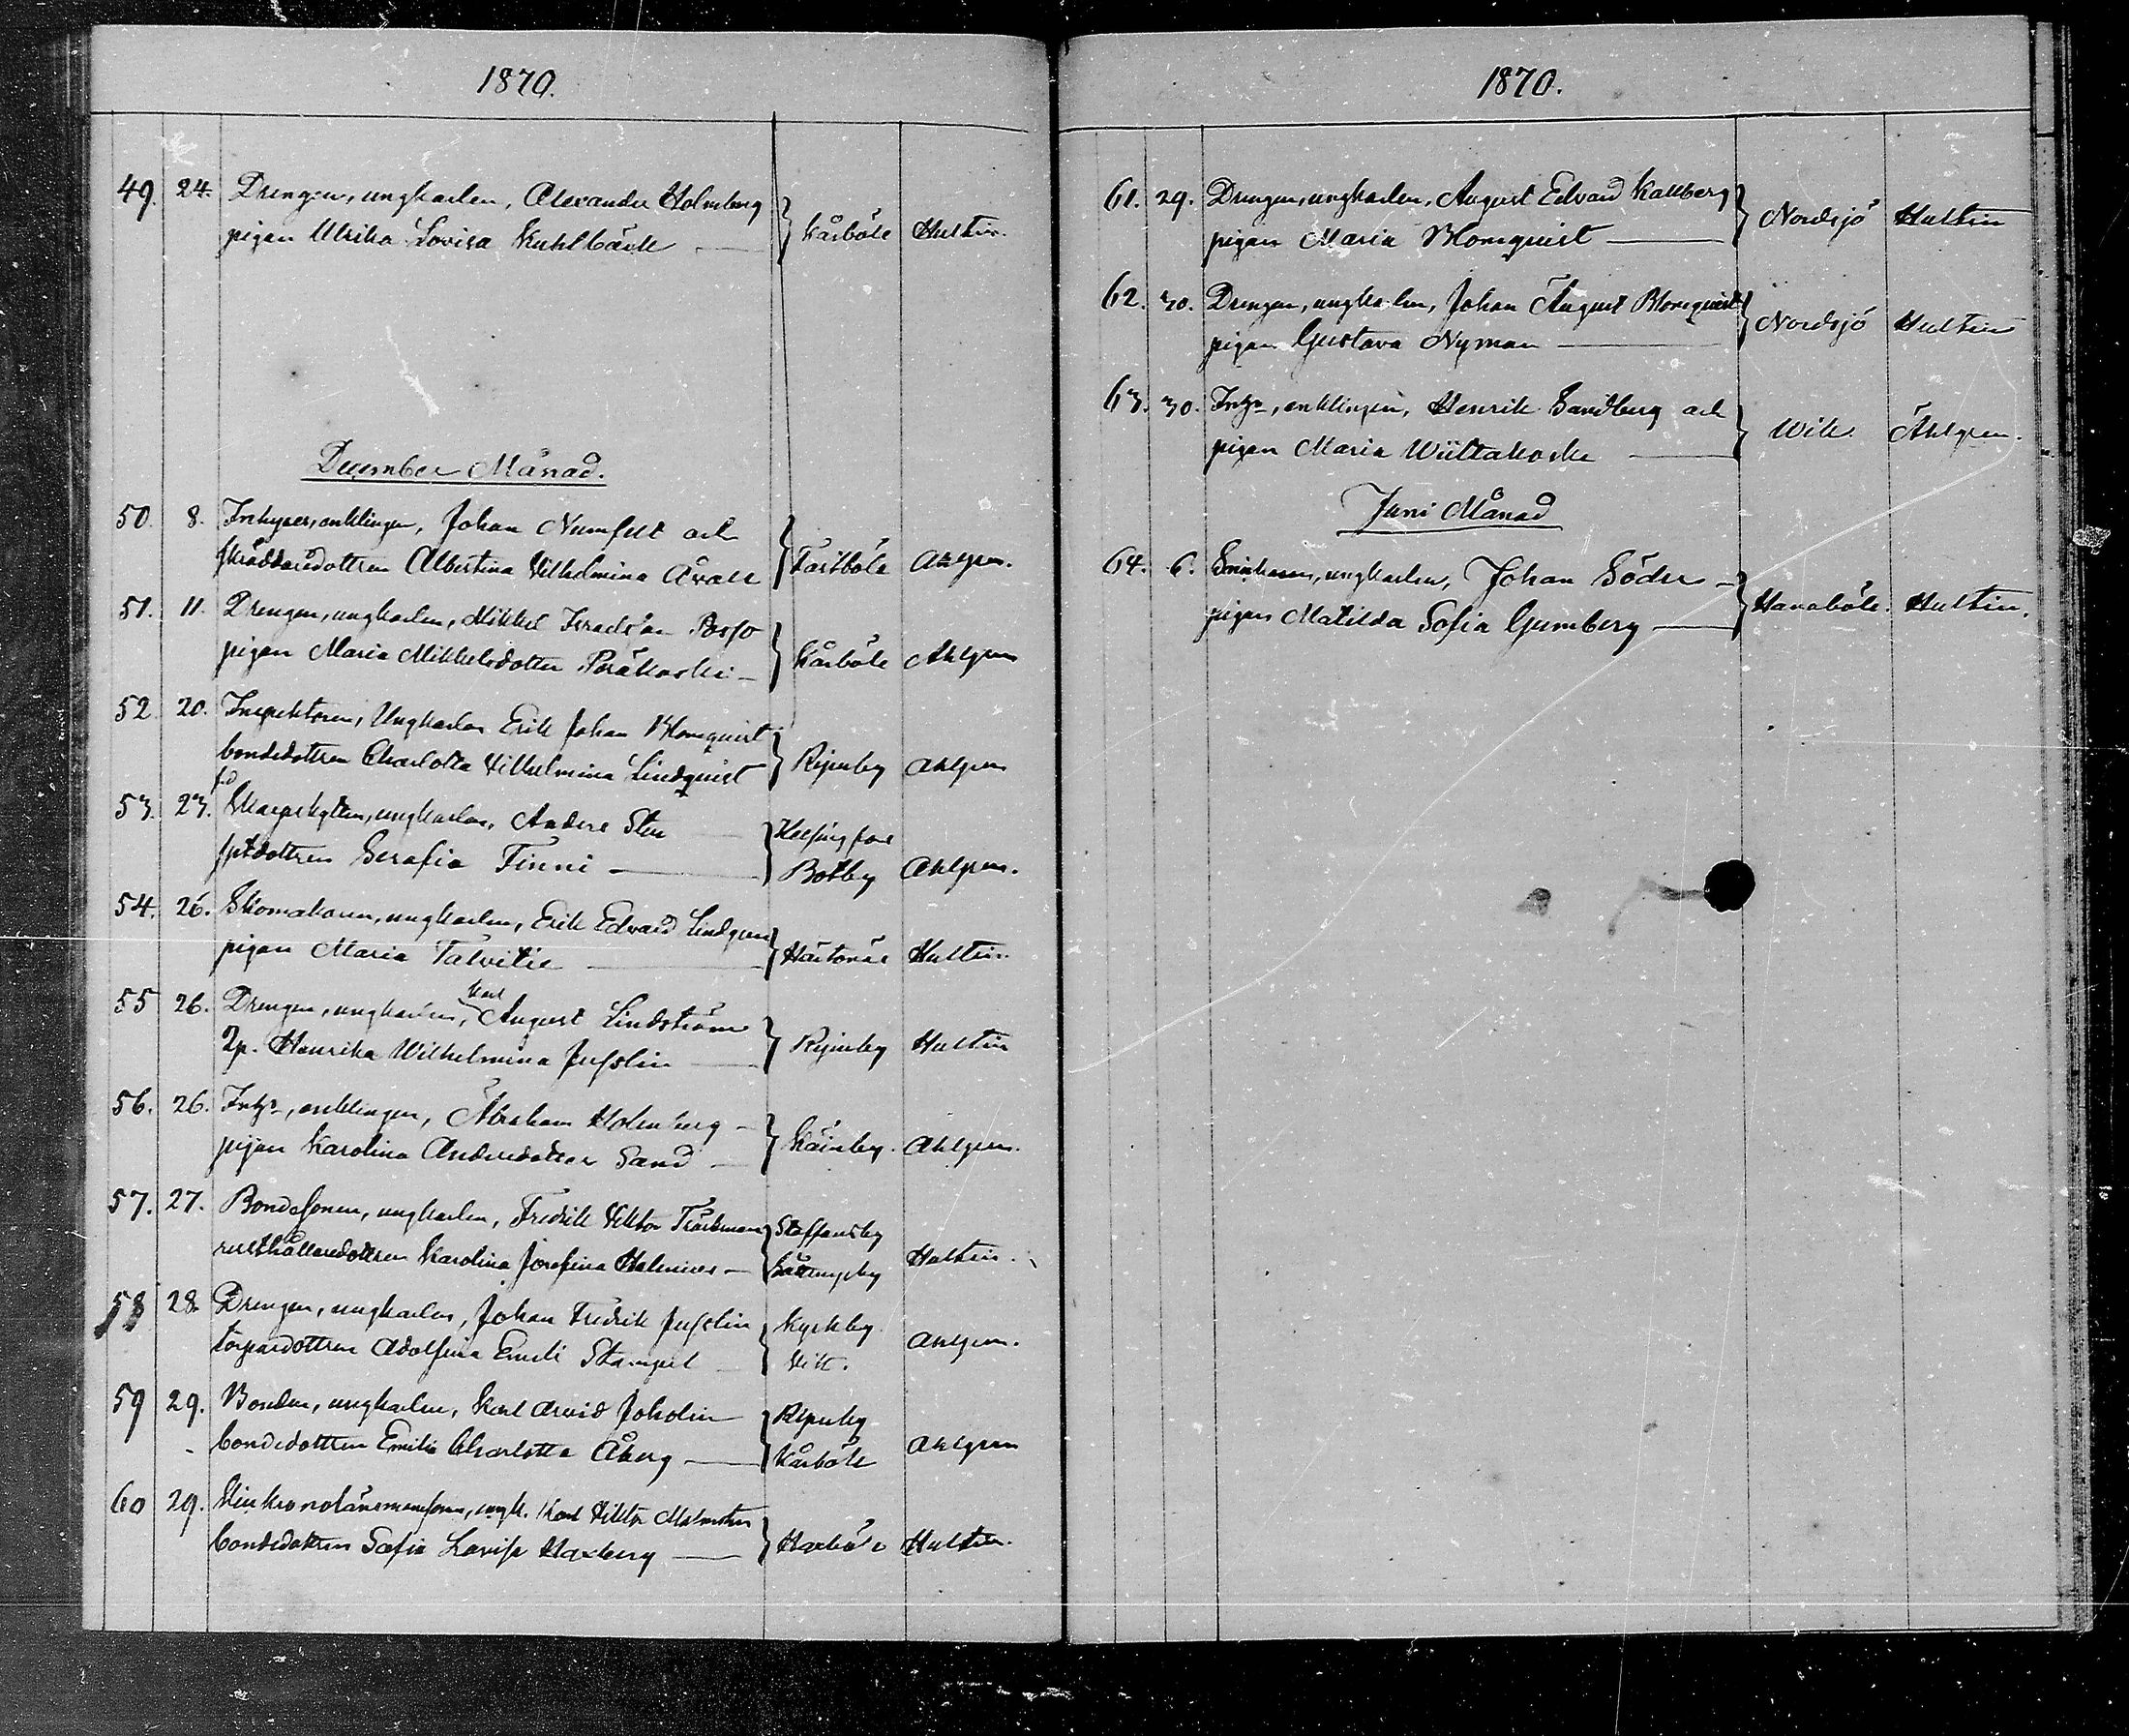 1870.
49. 24. Drengen, ungkarlen, Alexander Holmberg
pigan Ulrika Lovisa Kuhlbäck — Kårböle Hultin.
December Månad.
50. 8. Inhyses, enklingen, Johan Numfelt och
skräddaredottren Albertina Vilhelmina Kårböle Ahlgren.
51. 11. Drengen, ungkarlen, Mikkel Israelsson
pigan Maria Mikkelsdotter Peräkoski — Kårböle Ahlgren
52. 20. Inspektoren, Ungkarlen Erik Johan Blomquist
bondedottren Charlotta Vilhelmina Lindquist Ripuby Ahlgren
53. 23. fd Skarpskytten, ungkarlen, Anders Sten Helsingfors
dottren Serafia Finni — Botby Ahlgren.
54. 26. Skomakaren, ungkarlen, Erik Edvard Lindgren
pigan Maria Talvitie — Hertonäs Hultin.
55 26. Drengen, ungkarlen, Karl August Lindström
Qp. Henrika Wilhelmina Jusslin — Ripuby Hultin
56. 26. Inhs, enklingen, Abraham Holmberg —
pigan Karolina Andersdotter Sand — Käinby. Ahlgren.
57. 27. Bondesonen, ungkarlen, Fredrik Viktor Träskman Staffansby
rusthållaredottren Karolina Josefina Helenius — Hultin.
58 28. Drengen, ungkarlen, Johan Fredrik Jusslin Kyrkby
torpardottren Adolfina Emeli Stampel — Vik. Ahlgren.
59 29. Bonden, ungkarlen, Karl Arvid Joholin Ripuby
bondedottren Emilia Charlotta Åberg — Kårböle Ahlgren
60 29. Vicekronolänsmannsonen, ungk. Karl Viktor Malmsten
bondedottren Sofia Lovisa Haxberg — Haxböle Hultin.
1870.
61. 29. Drengen, ungkarlen, August Edvard Kallberg
pigan Maria Blomquist — Nordsjö Hultin
62. 30. Drengen, ungkarlen, Johan August Blomquist
pigan Gustava Nyman — Nordsjö Hultin
63. 30. Inhs, enklingen, Henrik Sandberg och
pigan Maria Wiittakoski — Wik Ahlgren.
Juni Månad
64. 6. ungkarlen, Johan Söder —
pigan Matilda Sofia Gumberg — Hanaböle. Hultin.